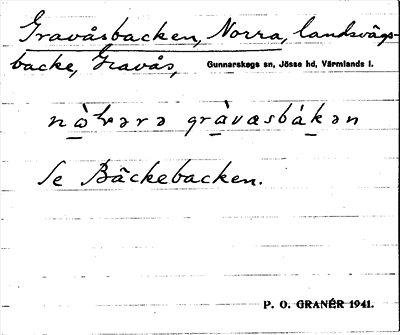 Gravåsbacken, Norra, landsvägs-
backe, Gravås, Gunnarskogs sn, Jösse hd, Värmlands l.
nò̲ꝛərə grà̲vasbá̲kən
Se Bäckebacken.
P. O. GRANÉR 1941.